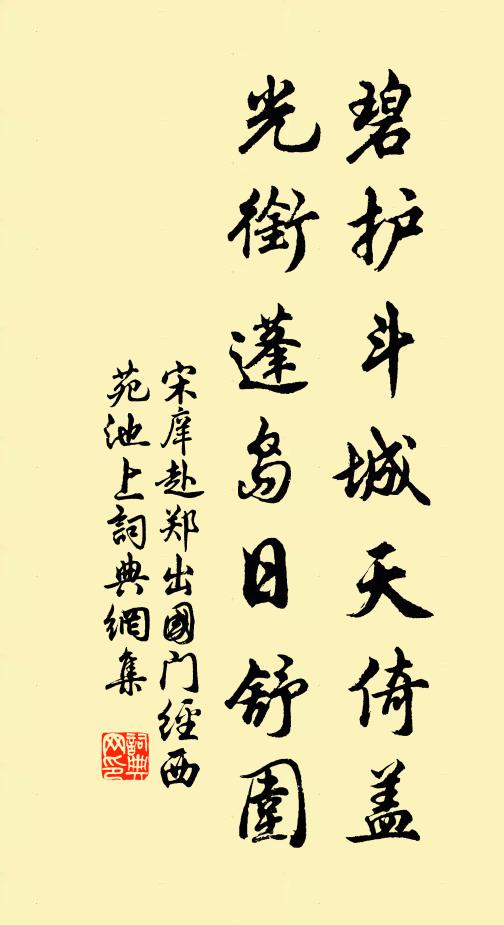 碧护斗城天倚盖
光衔蓬岛日舒围
宋庠赴郑出國门經西
苑池上詞典網集
詞典網印